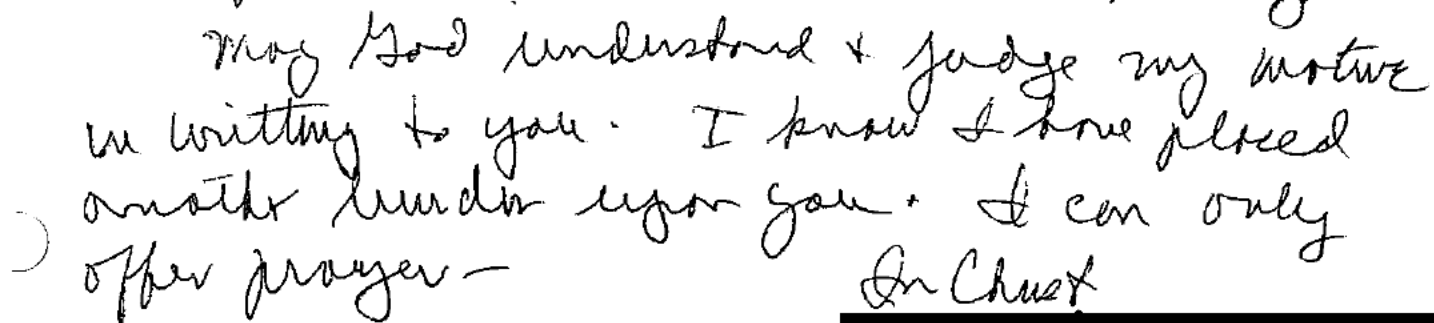 May God understand & judge my motive
in writting to you. I know I have placed
another burden upon you. I can only
offer prayer—
In Christ